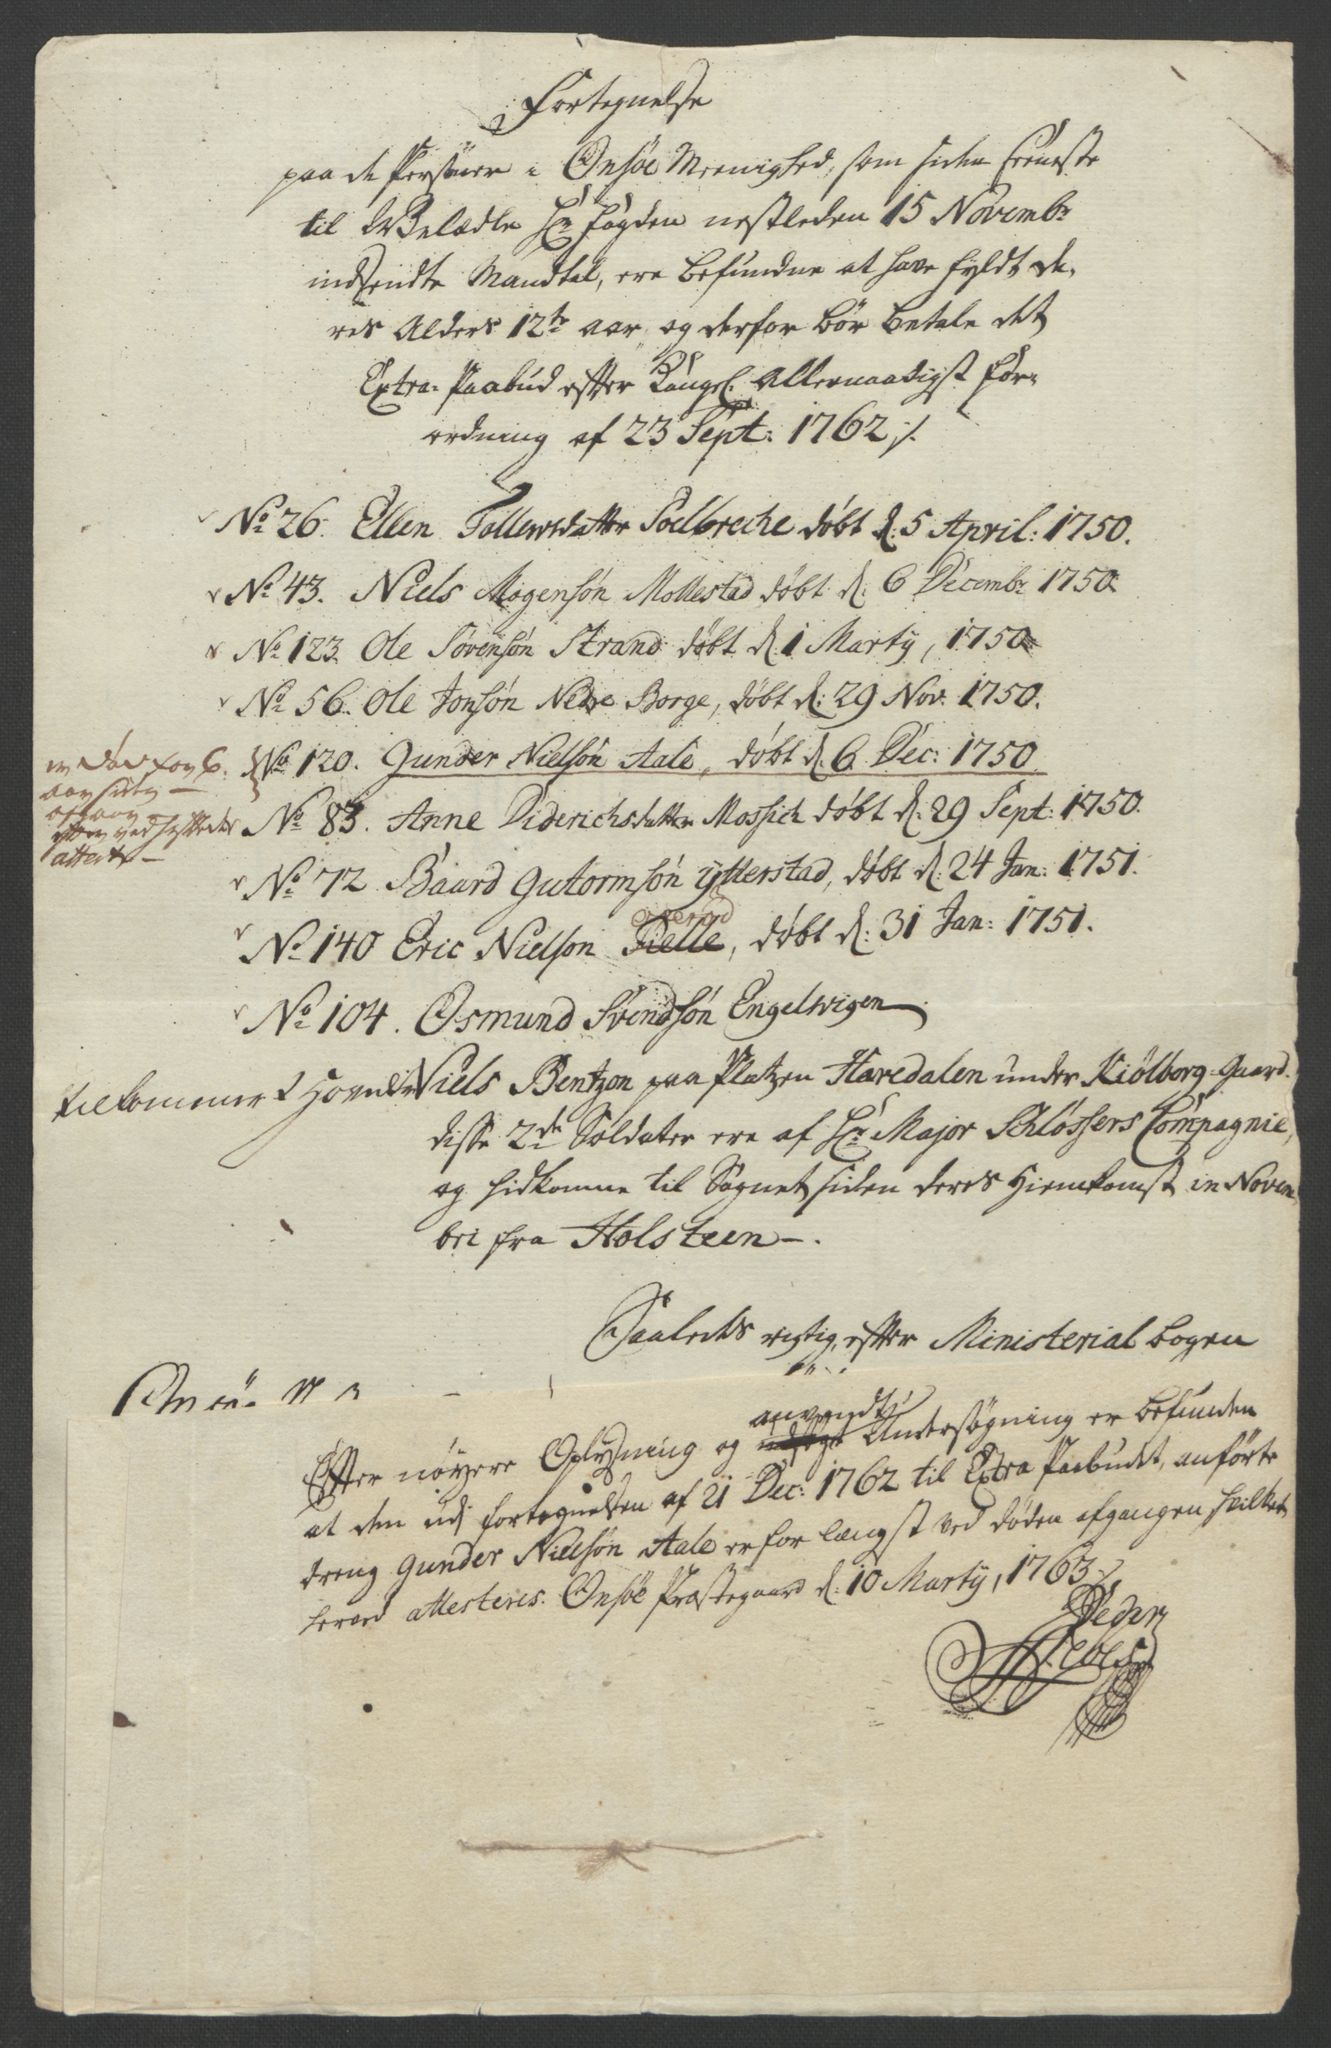 Fortegnelse
paa de Persöner i Onsöe Meenighed, som siden Seeneste
til WelÆdle Hr Fogden nestleden 15 Novembr
indsendte Mandtal, ere befundne at have fyldt de,
res Alders 12te aar, og derfor bör betale det
Extra-Paabud efter Kongel. Allernaadigst For-
ordning af 23 Sept: 1762 ./.
No 26. Ellen Tollewsdatter Soelbreche döbt d: 5 April: 1750.
No 43. Niels Mogensön Mollestad döbt d. 6 Decembr 1750
No 123 Ole Sövensön Strand döbt d. 1 Marty, 1750
No 56. Ole Jonsön Nedre Borge, döbt d: 29 Nov. 1750.
er död for 6.
aar siden
efter vedheftede
attest
No 120. Gunder Nielsön Aale, döbt d. 6 Dec: 1750
No 83. Anne Diderichsdatter Mossich döbt d. 29 Sept: 1750.
No 72 Baard Gutormsön Ytterstad, döbt d. 24 Jan: 1751.
No 140 Eric Nielson Fielle, döbt d: 31 Jan: 1751.
No 104. Osmund Svendsön Engelwigen
tilkommer Niels Bentzon paa Platzen Haredalen under Kiölborg-Gaard.
disse 2de Soldater ere af Hr Major Schlössers Compagnie,
og hidkomne til Sognet siden deres Hiemkomst in Novem
bri fra Holsteen
Saaledes rigtig efter Ministerial bogen
anvendt
Efter nöyere Oplysning og Undersögning er befunden
at den udi fortegnelsen af 21 Dec: 1762 til Extra Paabudet, anförte
dreng Gunder Nielsön Aale er for længst ved döden afgangen hvilket
herved attesteres. Onsöe Præstegaard d. 10 Marty, 1763 ./.
Peder